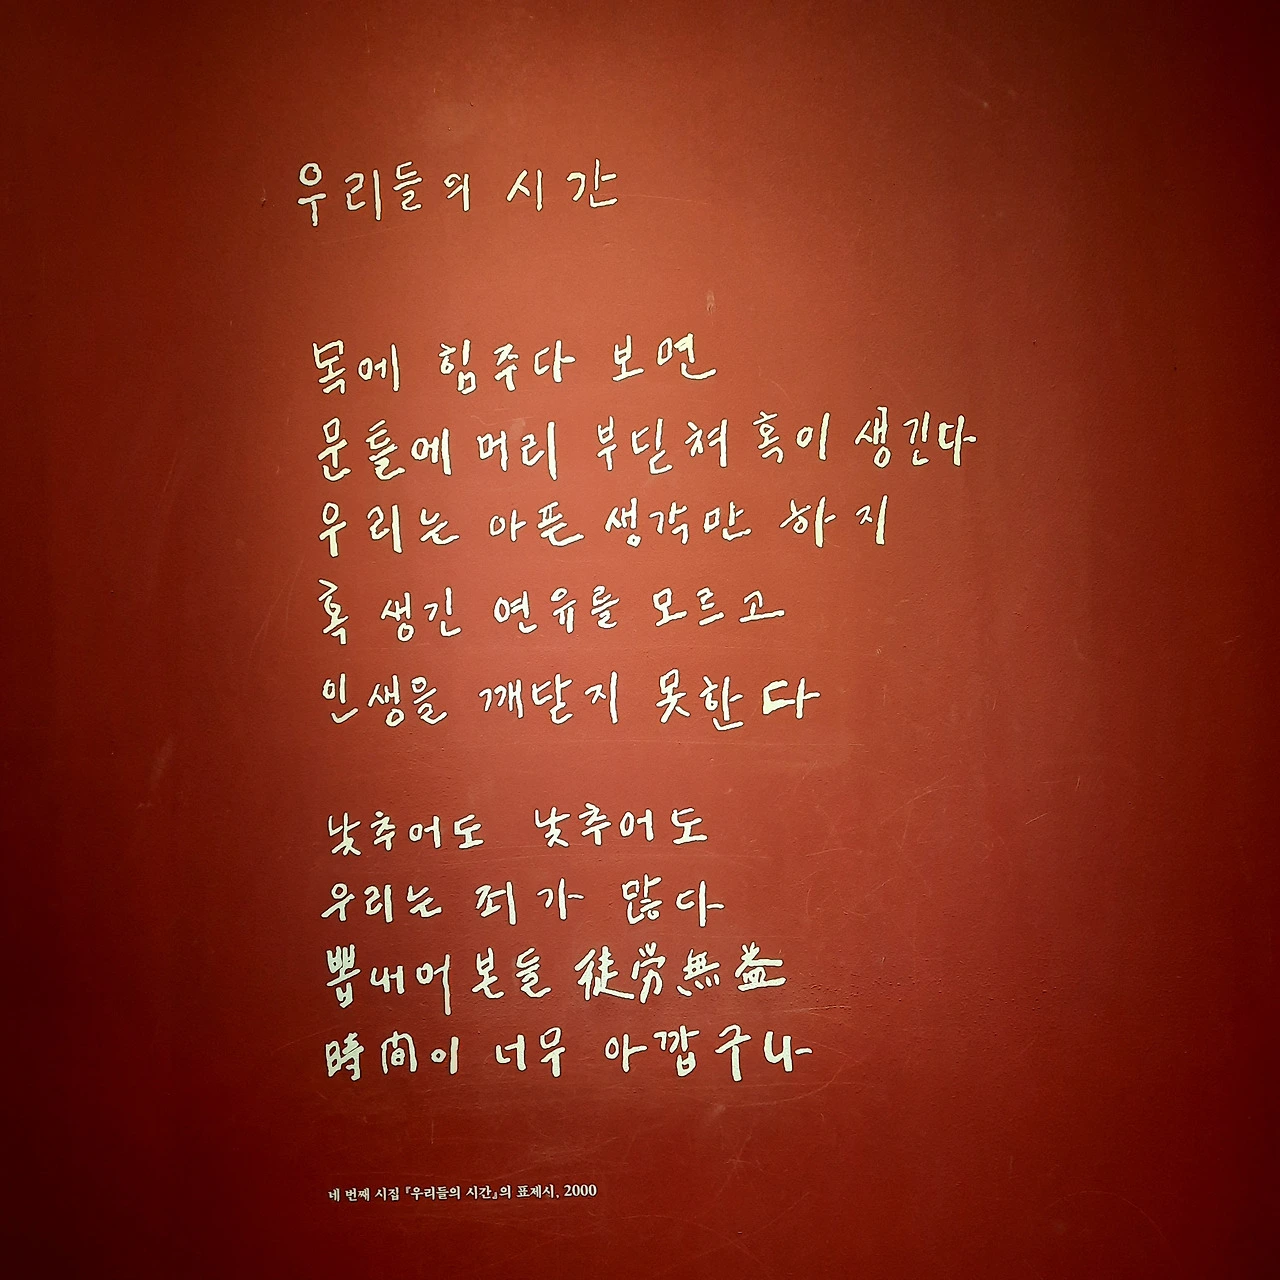 우리들의 시간
목에 힘주다 보면
문틀에 머리 부딛쳐 혹이 생긴다
우리는 아픈 생각만 하지
혹 생긴 연유를 모르고
인생을 깨닫지 못한다
낮추어도 낮추어도
우리는 죄가 많다
뽑내어 본들 徒勞無益
時間이 너무 아깝구나
네 번째 시집 『우리들의 시간』의 표제시, 2000